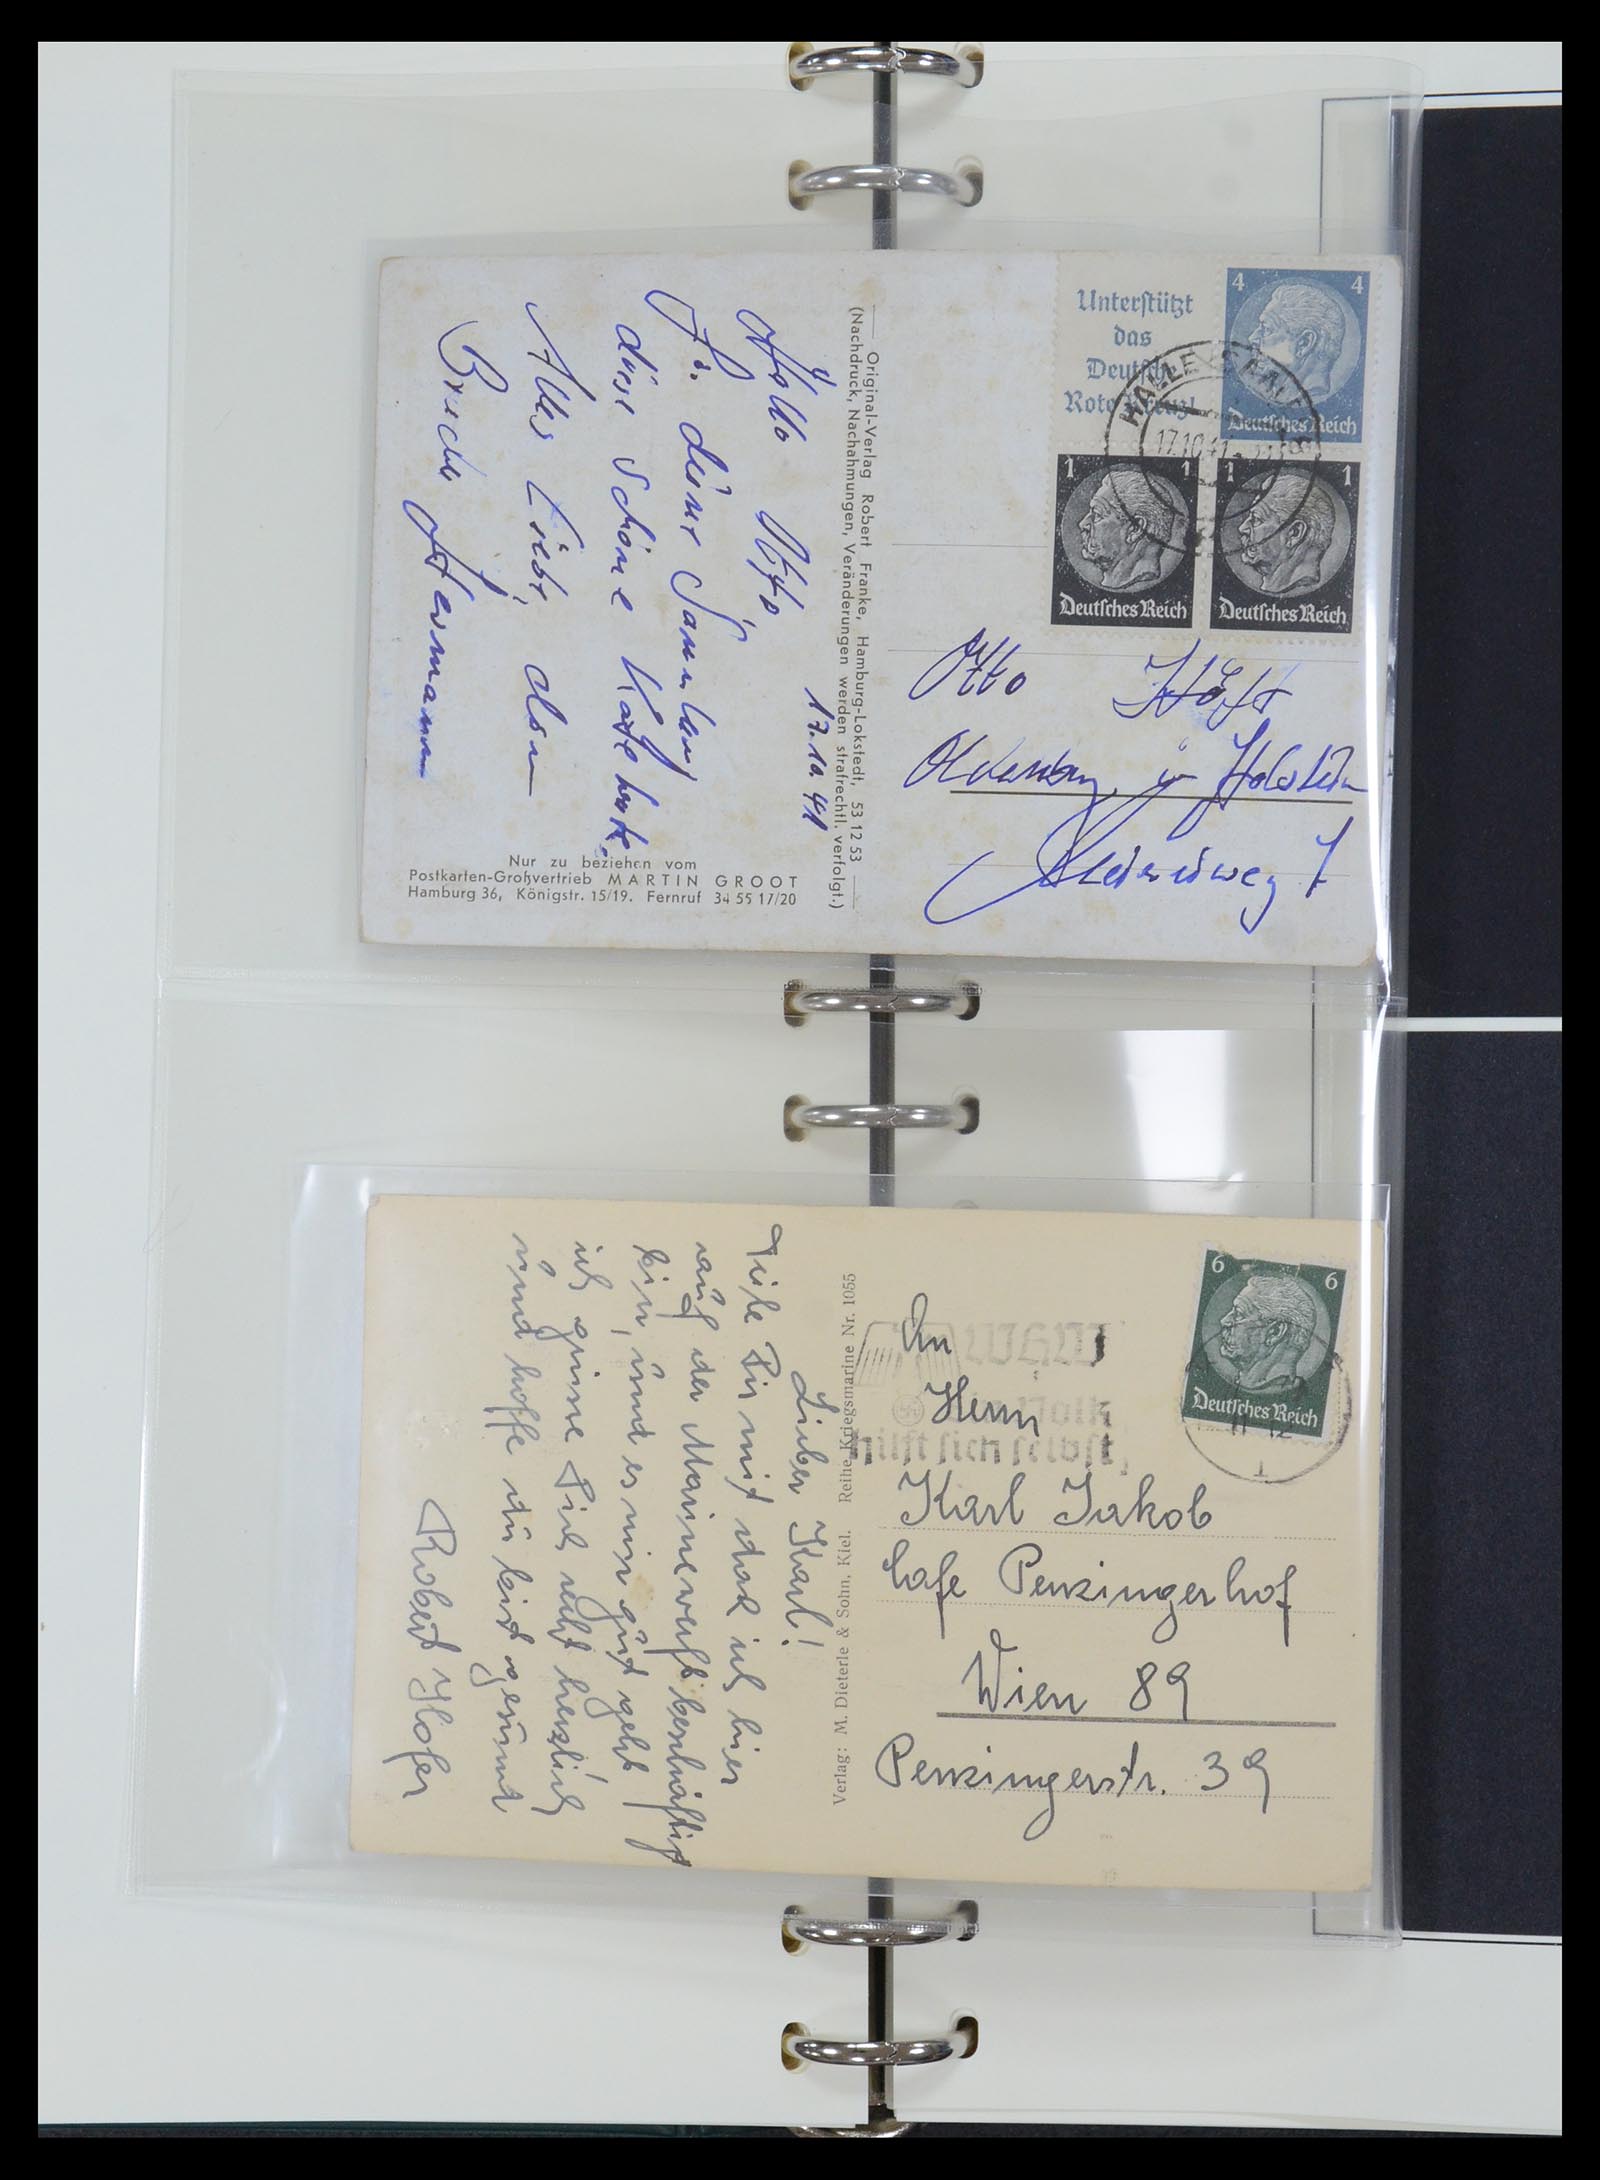 Unterstützt
das
Deutsche
Rote Kreuz!
4 4
Deutsches Reich
HALLE (SAALE)
17.10.41
1 1
Deutsches Reich
1 1
Deutsches Reich
Original-Verlag Robert Franke, Hamburg-Lokstedt, 53 12 53
(Nachdruck, Nachahmungen, Veränderungen werden strafrechtl. verfolgt.)
17.10.41
Hallo Otto,
Für deine Sammlung
diese schöne Karte heute.
Alles Liebe, dein
Bruder Hermann
Otto
Oldenburg in Holstein
Nur zu beziehen vom
Postkarten-Großvertrieb MARTIN GROOT
Hamburg 36, Königstr. 15/19. Fernruf 34 55 17/20
6 6
Deutsches Reich
WHW
Volk
hilft sich selbst
Verlag: M. Dieterle & Sohn, Kiel. Reihe Kriegsmarine Nr. 1055
Lieber Karl!
Teile Dir mit das ich hier
auf der Marinewerft beschäftigt
bin, und es mir gut geht
ich grüsse Dich recht herzlich
und hoffe du bist gesund
Robert Hofer
An
Herrn
Karl Jakob
Cafe Penzingerhof
Wien 89
Penzingerstr. 39